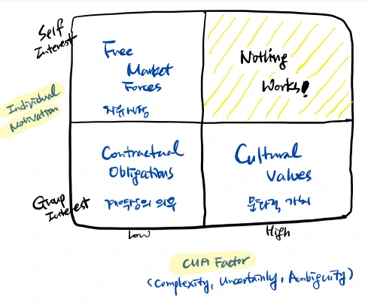 Self
Interest
Free
Market
Forces
자유시장
Nothing
Works!
Individual
Motivation
Contractual
Obligations
계약상의 의무
Cultural
Values
문화적 가치
Group
Interest
Low
High
CUA Factor
(Complexity, Uncertainty, Ambiguity)